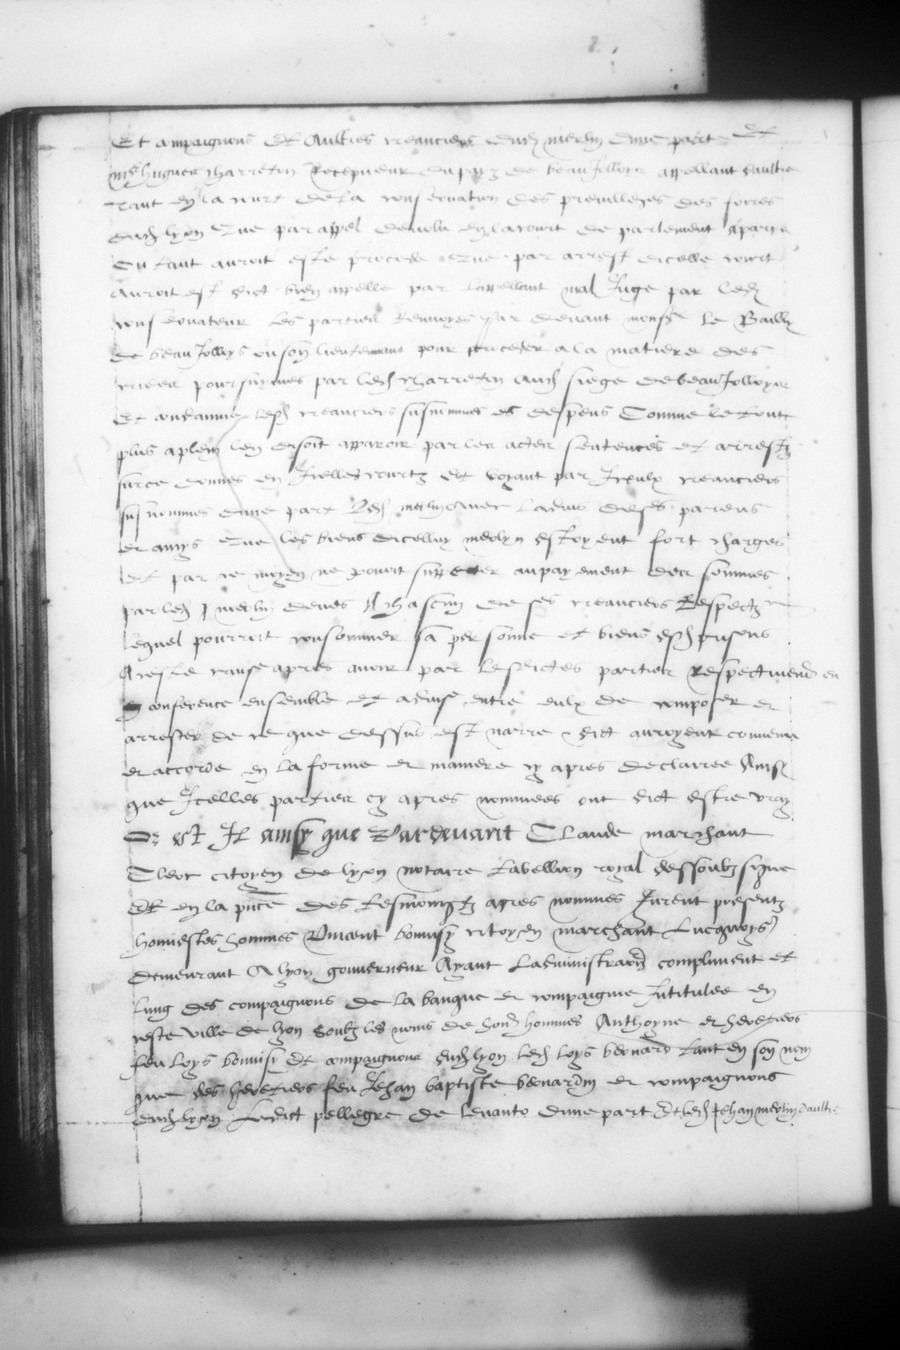 Et compaignons et aultres creanciers dud merlin dune part et
me hugues charreton Recepveur du pays de beauJolloys appellant daultre
Tant en la court de la conservation des previlleges des foires
dud lyon que par appel devolu en la court de parlement a paris
ou tant auroit este procede que par arrest dicelle court
auroit est dict bien appelle par lappellant mal Juge par led
conservateur les parties Renvoyes par devant monsr le Bailly
de beauJolloys ou son lieutenant pour proceder a la matiere des
criees poursuyvies par led charreton aud siege de beauJolloys
et condamnez lesd creanciers susnommes es despens Comme le tout
plus aplein len disoit apparoir par les actes sentences et arrestz
sur ce donnes en Icelles courtz et voyant par Iceulx creanciers
susnommes dune part Led merlin avec ladvis de ses parens
et amys que les biens dicelluy merlyn estoyent fort charges
et par ce moyen ne pouvit supporter au payement des sommes
par led J merlin deues A chascun de ses creanciers Respectz
lequel pourroit consommer sa personne et biens esd prisons
A ceste cause apres avoir par lesdictes parties Respectivemt eu
conference ensemble et advise entre eulx de composer et
arrester de ce que dessus est narre dict auroyent convenu
et accorde en la forme et maniere cy apres declairee Ainsy
que Icelles parties cy apres nommees ont dict estre vray
Or est Il ainsy que Pardevant Claude marchant
Clerc citoyen de lyon notaire tabellion royal dessoubz signe
et en la pnce des tesmoingtz apres nommes furent presentz
honnestes hommes Vincent bonvisy citoyen marchant Lucquoys
demeurant A lyon gouverneur Ayant Ladministraon compliment et
lung des compaignons de la banque et compaignie Intitulee en
ceste ville de lyon soubz les noms de hon hommes Anthoyne et heretiers
feu loys bonvisy et compaignons dud lyon led loys benard tant en son nom
que des heretiers feu Jehan baptiste benardin et compaignons
dud lyon Ledict pellegre de levanto dune part Et led Jehan merlin daultre